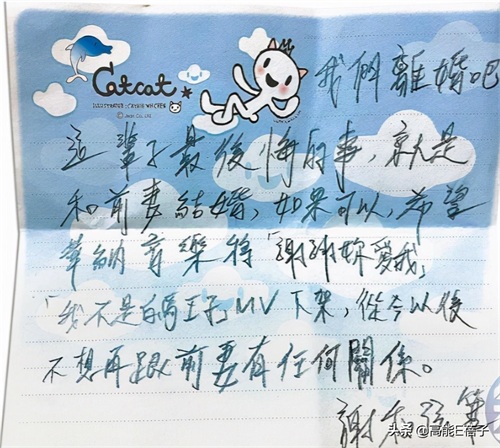 我們離婚吧
Catcat
ILLUSTRATOR : CATHIE WH CHEN
這輩子最後悔的事，就是
和前妻結婚，如果可以，希望
華納音樂將「謝謝妳愛我」
「我不是白馬王子」MV下架，從今以後
不想再跟前妻有任何關係。
謝和弦 筆
头条 @高能E蓓子